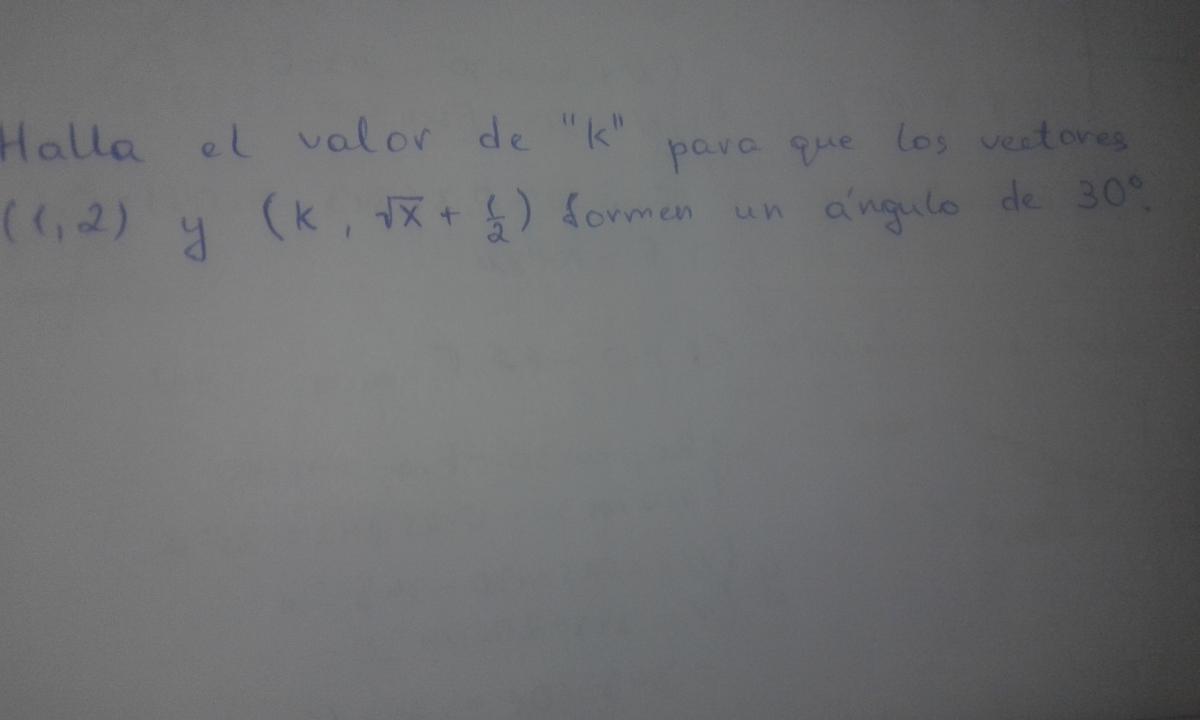 Halla el valor de "k" para que los vectores
(1,2) y (k, √x + 1/2) formen un ángulo de 30º.